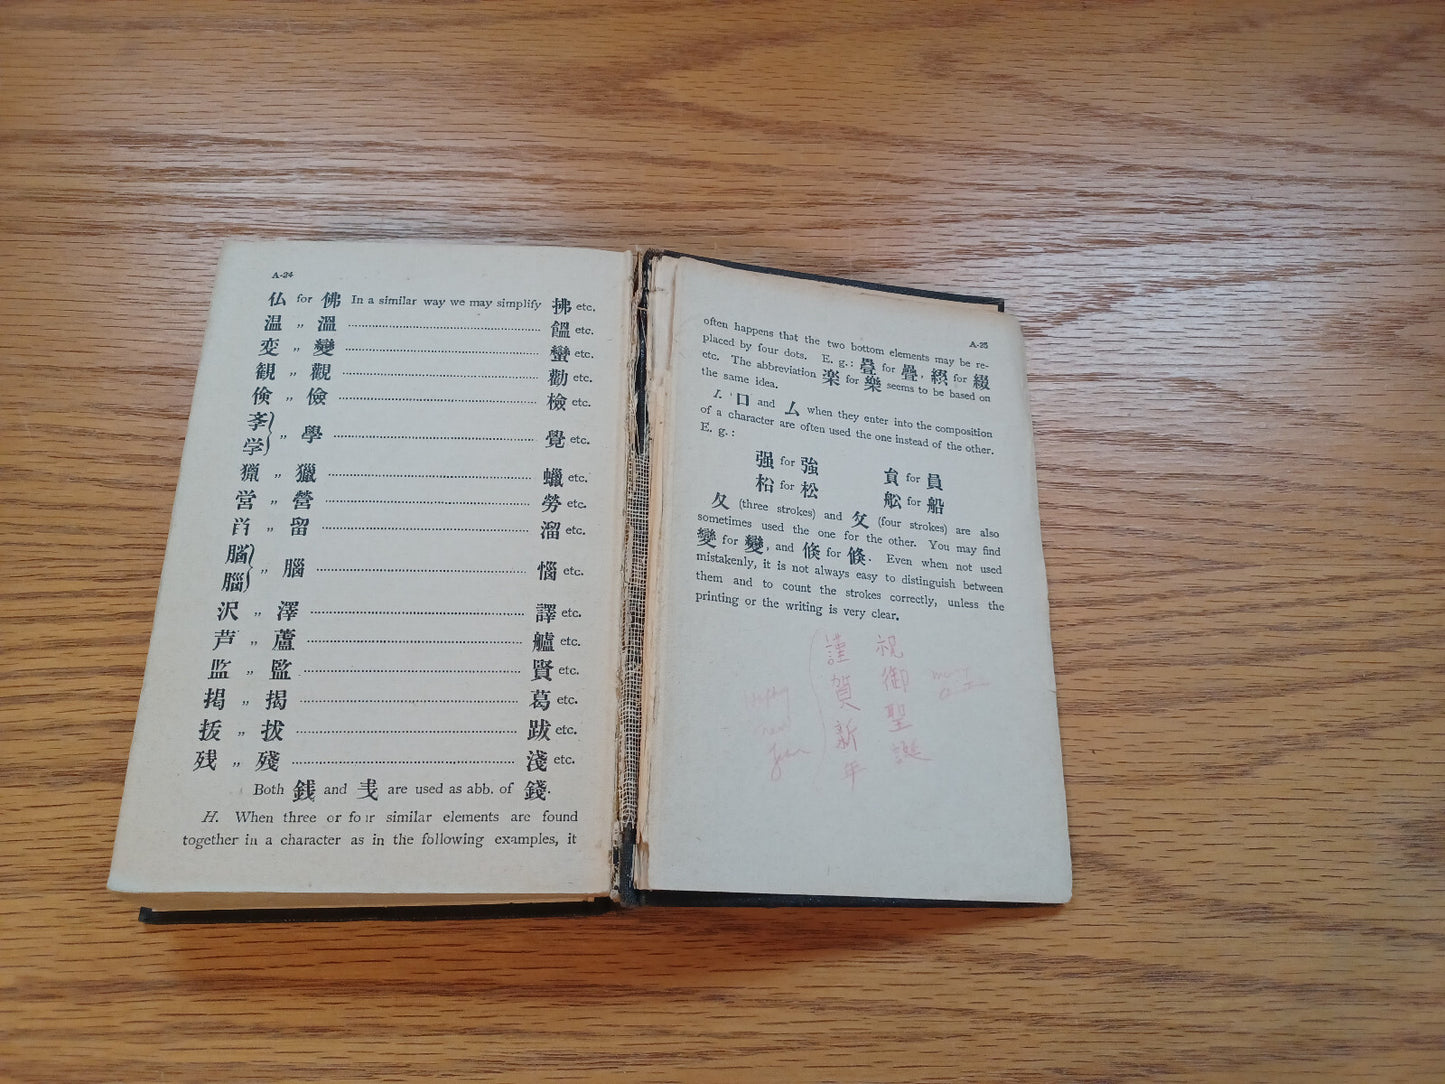 A-24
仏 for 佛 In a similar way we may simplify 拂 etc.
温 〃 溫 饂 etc.
変 〃 變 蠻 etc.
観 〃 觀 勸 etc.
倹 〃 儉 檢 etc.
斈
学 〃 學 覺 etc.
猟 〃 獵 蠟 etc.
営 〃 營 勞 etc.
留 溜 etc.
脳 〃 腦 惱 etc.
沢 〃 澤 譯 etc.
芦 〃 蘆 艫 etc.
监 〃 監 賢 etc.
掲 〃 揭 葛 etc.
抜 〃 拔 跋 etc.
残 〃 殘 淺 etc.
Both 銭 and are used as abb. of 錢.
H. When three or four similar elements are found
together in a character as in the following examples, it
A-25
often happens that the two bottom elements may be re-
placed by four dots. E. g.: for 疊, for 綴
etc. The abbreviation 楽 for 樂 seems to be based on
the same idea.
I. 口 and 厶 when they enter into the composition
of a character are often used the one instead of the other.
E. g.:
强 for 強 貟 for 員
枱 for 松 舩 for 船
夂 (three strokes) and 攵 (four strokes) are also
sometimes used the one for the other. You may find
變 for 變, and 倏 for 倏. Even when not used
mistakenly, it is not always easy to distinguish between
them and to count the strokes correctly, unless the
printing or the writing is very clear.
祝御聖誕
謹賀新年